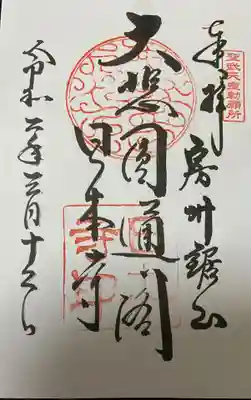 聖武天皇勅願所
奉拝 房州鋸山
大悲圓通閣
日本寺
令和二年三月十六日